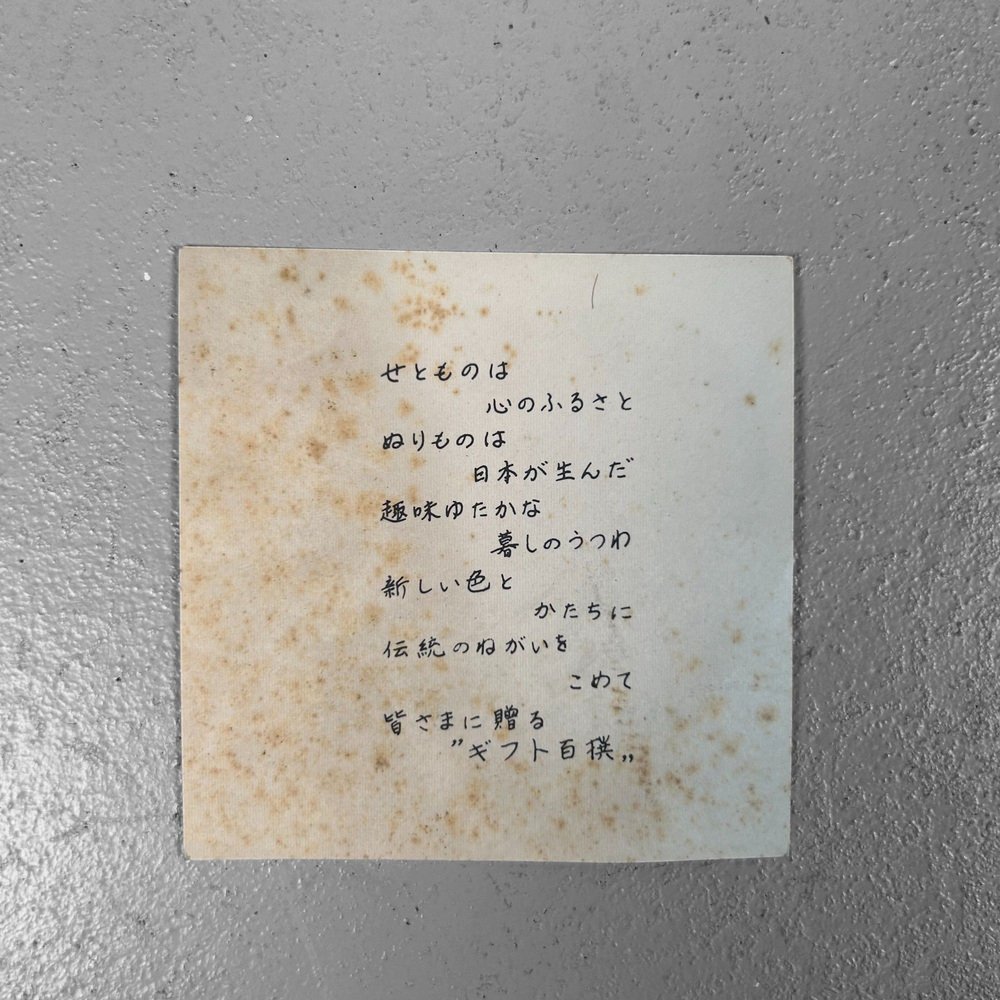 せとものは
心のふるさと
ぬりものは
日本が生んだ
趣味ゆたかな
暮しのうつわ
新しい色と
かたちに
伝統のねがいを
こめて
皆さまに贈る
"ギフト百撰„